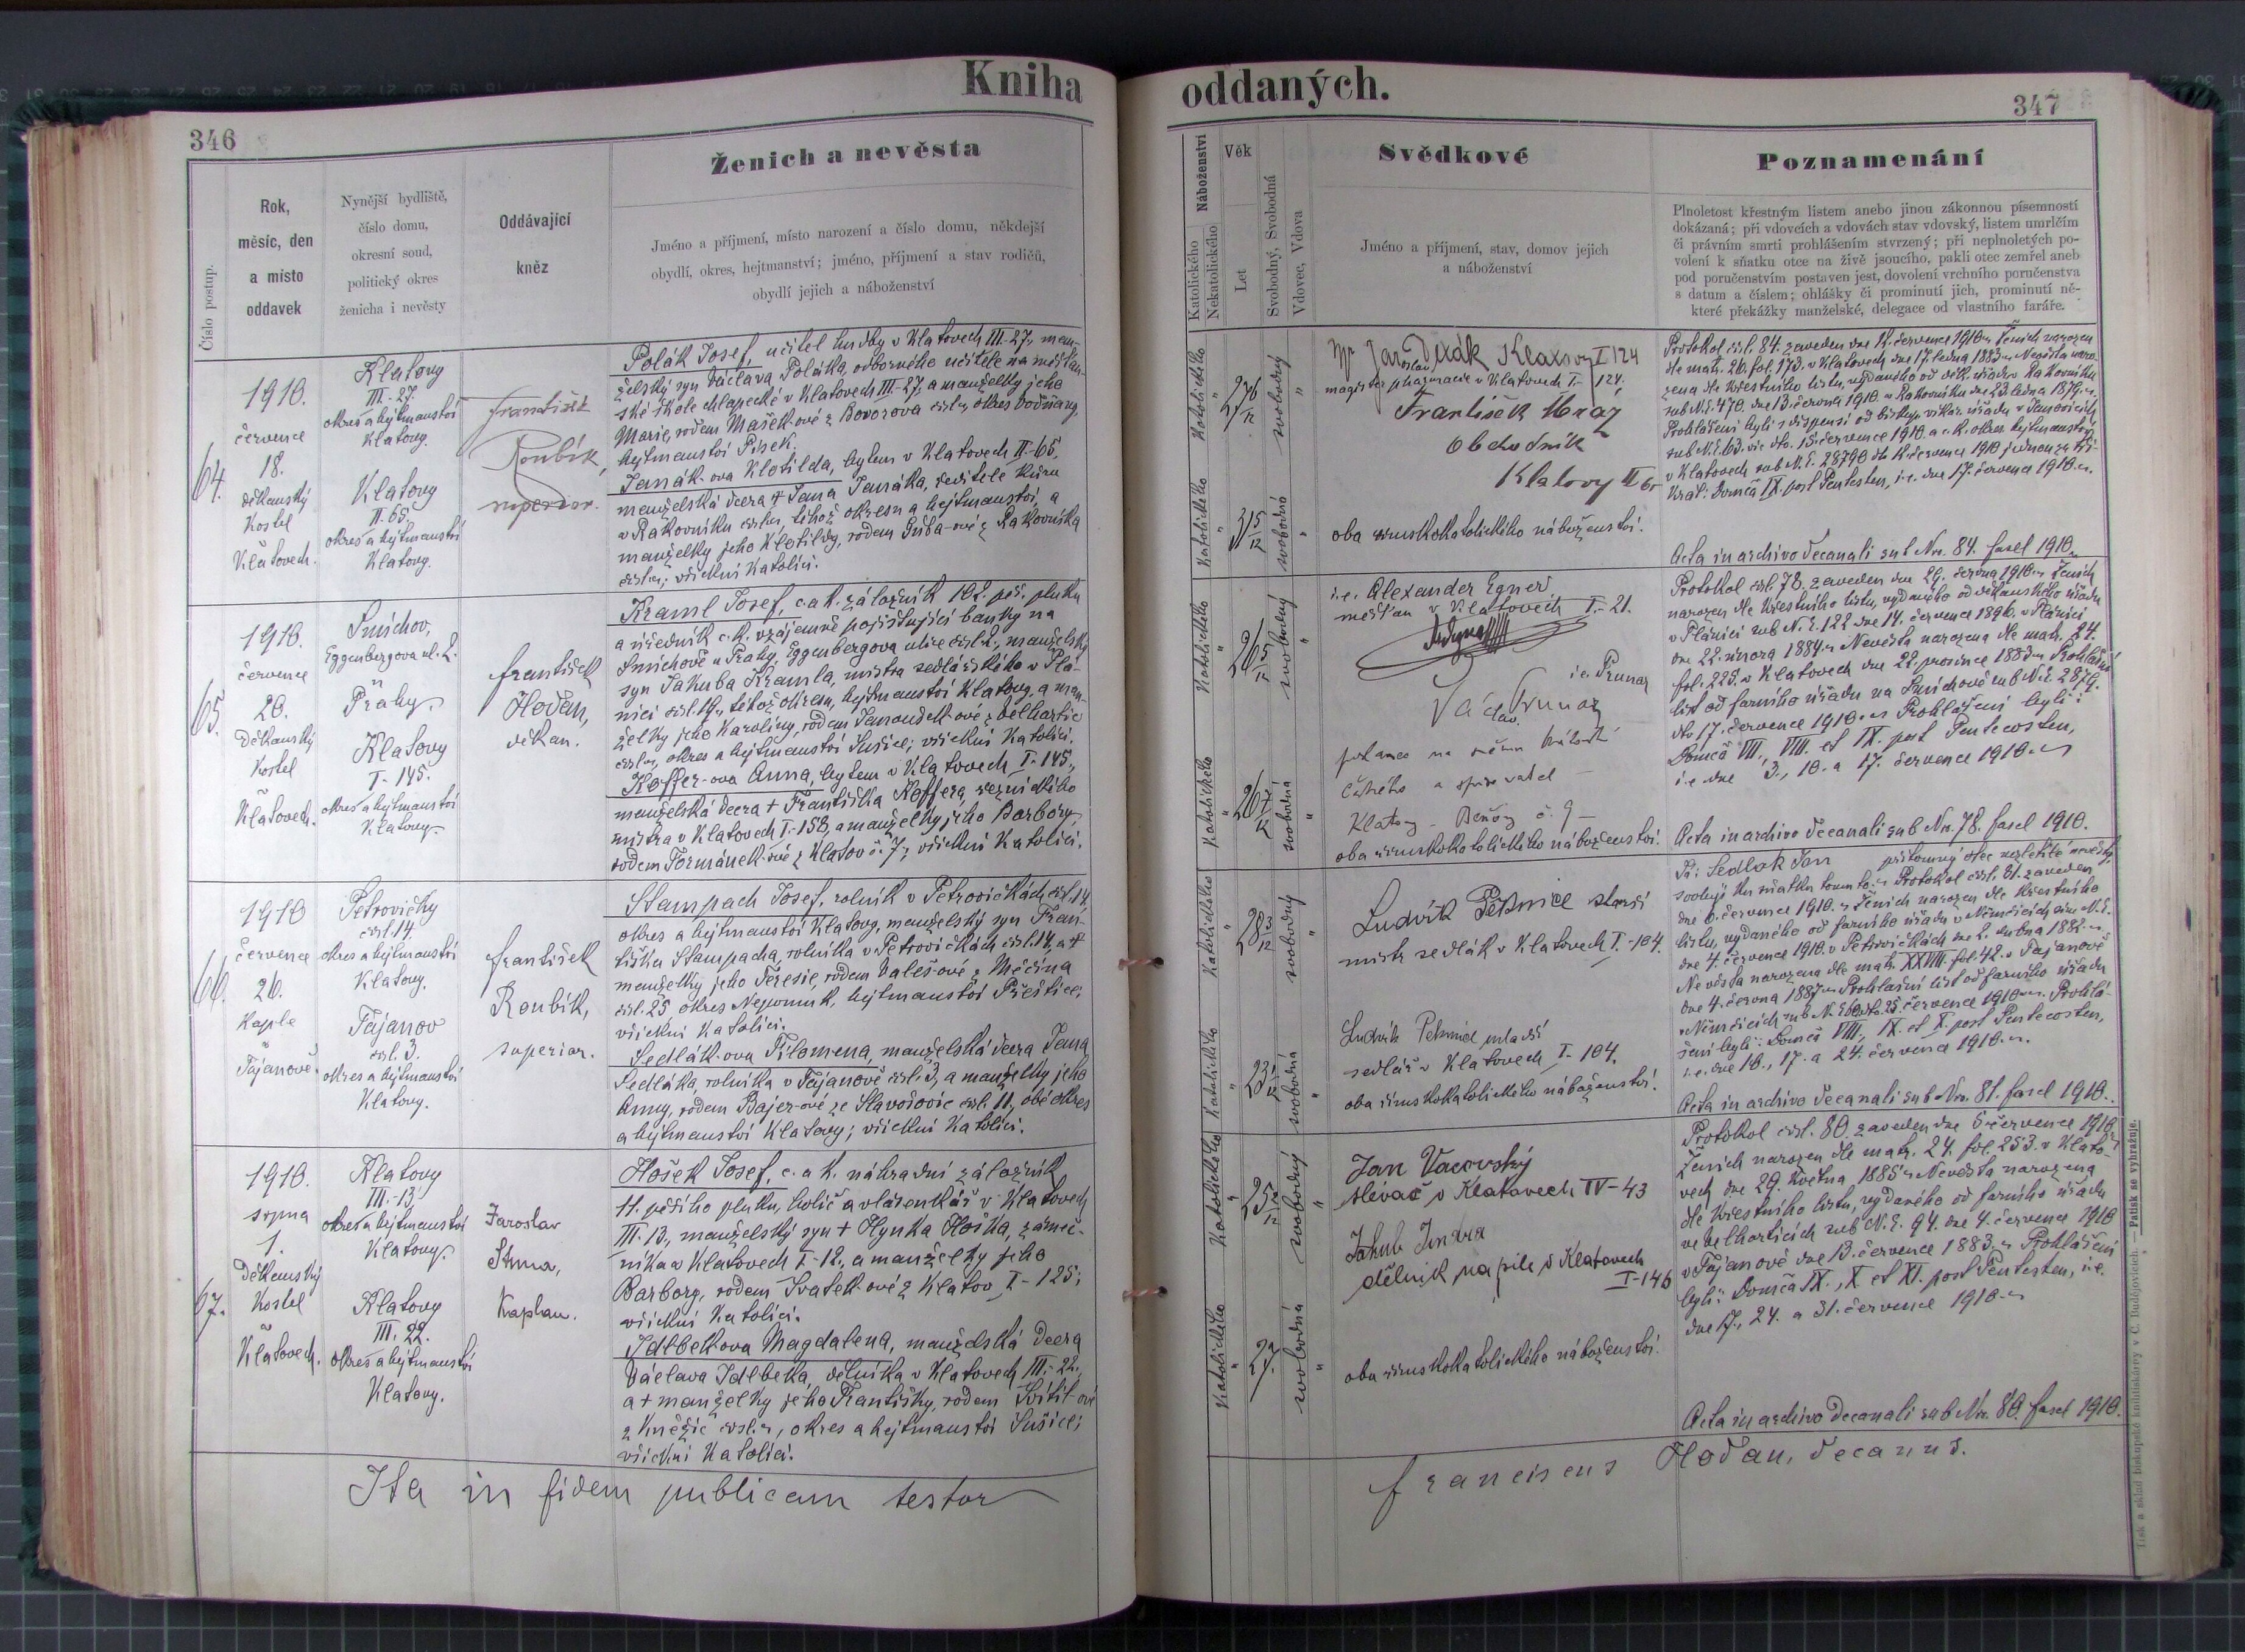 Kniha oddaných.
346
347
Číslo postup.
Rok,
měsíc, den
a místo
oddavek
Nynější bydliště,
číslo domu,
okresní soud,
politický okres
ženicha i nevěsty
Oddávající
kněz
Ženich a nevěsta
Jméno a příjmení, místo narození a číslo domu, někdejší
obydlí, okres, hejtmanství; jméno, příjmení a stav rodičů,
obydlí jejich a náboženství
Náboženství
Katolického
Nekatolického
Věk
Let
Svobodný, Svobodná
Vdovec, Vdova
Svědkové
Jméno a příjmení, stav, domov jejich
a náboženství
Poznamenání
Plnoletost křestným listem anebo jinou zákonnou písemností
dokázaná; při vdovcích a vdovách stav vdovský, listem umrlčím
či právním smrti prohlášením stvrzený; při neplnoletých po-
volení k sňatku otce na živě jsoucího, pakli otec zemřel aneb
pod poručenstvím postaven jest, dovolení vrchního poručenstva
s datum a číslem; ohlášky či prominutí jich, prominutí ně-
které překážky manželské, delegace od vlastního faráře.
64.
1910.
července
18.
děkanský
kostel
v
Klatovech.
Klatovy
III.-27.
okres a hejtmanství
Klatovy.
Klatovy
II.-65.
okres a hejtmanství
Klatovy.
František
Roubík,
superior.
Polák Josef, učitel hudby v Klatovech III.-27., man-
želský syn Václava Poláka, odborného učitele na měšťan-
ské škole chlapecké v Klatovech III.-27., a manželky jeho
Marie, rodem Mašek-ové z okres Vodňany
hejtmanství Písek.
Janák-ova Klotilda, bytem v Klatovech II.-65.,
manželská dcera † Jana Janáka, ředitele kůru
v Rakovníku téhož okresu a hejtmanství, a
manželky jeho Klotildy, rodem z Rakovníka
všichni katolíci.
Katolického
svobodný
Katolického
svobodná
Mr Jaroslav Klatovy I 124
magister pharmacie v Klatovech I.-124.
František Mráz
Obchodník
Klatovy II 65
oba římskokatolického náboženství.
Protokol čísl. 84. zaveden dne 12. července 1910. Ženich narozen
dle matr. 26. fol. 173. v Klatovech dne 17. ledna 1883. Nevěsta naro-
zena dle křestního listu, vydaného od děk. úřadu v Rakovníku
sub N.E. 470. dne 13. června 1910. v Rakovníku dne 23. ledna 1879.
Prohlášeni byli s dispensí od biskup. vikar. úřadu v Janovicích
sub N.E. 63. dto. 15. července 1910. a c.k. okres. hejtmanství
v Klatovech sub N.E. 28790 července 1910 jednou za tři-
krát: Domcâ IX. post Pentecosten, i.e. dne 17. července 1910.
Acta in archivo decanali sub Nro. 84. fascl 1910.
65.
1910.
července
20.
Děkanský
kostel
v
Klatovech.
Smíchov,
Eggenbergova ul. 2.
u
Prahy.
Klatovy
I.-145.
okres a hejtmanství
Klatovy.
František
Hoďan,
děkan.
Kraml Josef, c. a k. záložník 102. pěš. pluku
a úředník c.k. vzájemně pojišťující banky na
Smíchově u Prahy, Eggenbergova ulice čísl. 2., manželský
syn Jakuba Kramla, mistra sedlářského v Plá-
nici čísl. 19., téhož okresu, hejtmanství Klatovy, a man-
želky jeho Karolíny, rodem Janoušek-ové z Velhartic
okres a hejtmanství Sušice; všichni katolíci.
Koffer-ova Anna, bytem v Klatovech I.-145.,
manželská dcera † Františka Koffera, řeznického
mistra v Klatovech I.-158, a manželky jeho Barbory,
rodem Formánek-ové z Klatov č. 7; všichni katolíci.
Katolického
svobodný
Katolického
svobodná
i.e. Alexander Egner,
měšťan v Klatovech I.-21.
i.e. Prunar
Václav Prunar
Klatovy - Beňovy č. 9 -
oba římskokatolického náboženství.
Protokol čísl. 78. zaveden dne 29. června 1910. Ženich
narozen dle křestního listu, vydaného od děkanského úřadu
v Plánici sub N.E. 122 dne 14. července 1896. v Plánici
dne 22. února 1884. Nevěsta narozena dle matr. 24.
fol. 225. v Klatovech dne 22. prosince 1883. Prohlašní
list od farního úřadu na Smíchově sub N.E. 2879.
dto 17. července 1910. Prohlášeni byli:
Domcâ VII., VIII. et IX. post Pentecosten,
i.e. dne 3., 10. a 17. července 1910.
Acta in archivo decanali sub Nro. 78. fascl 1910.
66.
1910
července
26.
Kaple
v
Tajanově.
Petrovičky
čísl. 14.
okres a hejtmanství
Klatovy.
Tajanov
čísl. 3.
okres a hejtmanství
Klatovy.
František
Roubík,
superior.
Stampach Josef, rolník v Petrovičkách čísl. 14.
okres a hejtmanství Klatovy, manželský syn Fran-
tiška Stampacha, rolníka v Petrovičkách čísl. 14., a †
manželky jeho Terezie, rodem Valeš-ové z Měčína
čísl. 25, okres Nepomuk, hejtmanství Přeštice;
všichni katolíci.
Sedlák-ova Filomena, manželská dcera Jana
Sedláka, rolníka v Tajanově čísl. 3, a manželky jeho
Anny, rodem Bajer-ové ze Slavošovic čísl. 11., obé okres
a hejtmanství Klatovy; všichni katolíci.
Katolického
svobodný
Katolického
svobodná
Ludvík starší
mistr sedlář v Klatovech I.-104.
Ludvík mladší
sedlář v Klatovech I-104.
oba římskokatolického náboženství.
Sedlak Jan přítomný otec nezletilé nevěsty,
svoluje ku sňatku tomuto. Protokol čísl. 81. zaveden
dne 6. července 1910. Ženich narozen dle křestního
listu, vydaného od farního úřadu v Němčicích N.E.
dne 4. července 1910. v Petrovičkách dne 2. dubna 1882.
Nevěsta narozena dle matr. XXVIII. fol. 42. v Tajanově
dne 4. června 1887. Prohlašní list od farního úřadu
v Němčicích sub N.E. dto. 25. července 1910. Prohlá-
šeni byli: Domcâ VIII., IX. et X. post Pentecosten,
i.e. dne 10., 17. a 24. července 1910.
Acta in archivo decanali sub Nro. 81. fascl 1910.
67.
1910.
srpna
1.
Děkanský
kostel
v
Klatovech.
Klatovy
III.-13.
okres a hejtmanství
Klatovy.
Klatovy
III. 22.
okres a hejtmanství
Klatovy.
Jaroslav
kaplan.
Hošek Josef, c. a k. náhradní záložník
11. pěšího pluku, holič a vlásenkář v Klatovech
III.-13., manželský syn † Hynka Hoška, zámeč-
níka v Klatovech I-12., a manželky jeho
Barbory, rodem Svatek-ové z Klatov I-125;
všichni katolíci.
Idlbekova Magdalena, manželská dcera
Václava Idlbeka, dělníka v Klatovech III.-22.,
a † manželky jeho Františky, rodem Svítil-ové
z Kněžic okres a hejtmanství Sušice;
všichni katolíci.
Katolického
svobodný
Katolického
27.
svobodná
Jan Vacovský
slévač v Klatovech IV-43
Jakub
dělník na pile v Klatovech
I-146
oba římskokatolického náboženství.
Protokol čísl. 80. zaveden dne července 1910.
Ženich narozen dle matr. 24. fol. 253. v Klato-
vech dne 29. května 1885. Nevěsta narozena
dle křestního listu, vydaného od farního úřadu
ve Velharticích sub N.E. 94. dne 4. července 1910
v Tajanově dne 13. července 1883. Prohlášeni
byli: Domcâ IX., X. et XI. post Pentecosten, i.e.
dne 17., 24. a 31. července 1910.
Acta in archivo decanali sub Nro. 80. fascl 1910.
Ita in fidem publicam testor
Franciscus Hoďan, decanus.
Tisk a sklad biskupské knihtiskárny v Č. Budějovicích. — Patisk se vyhražuje.